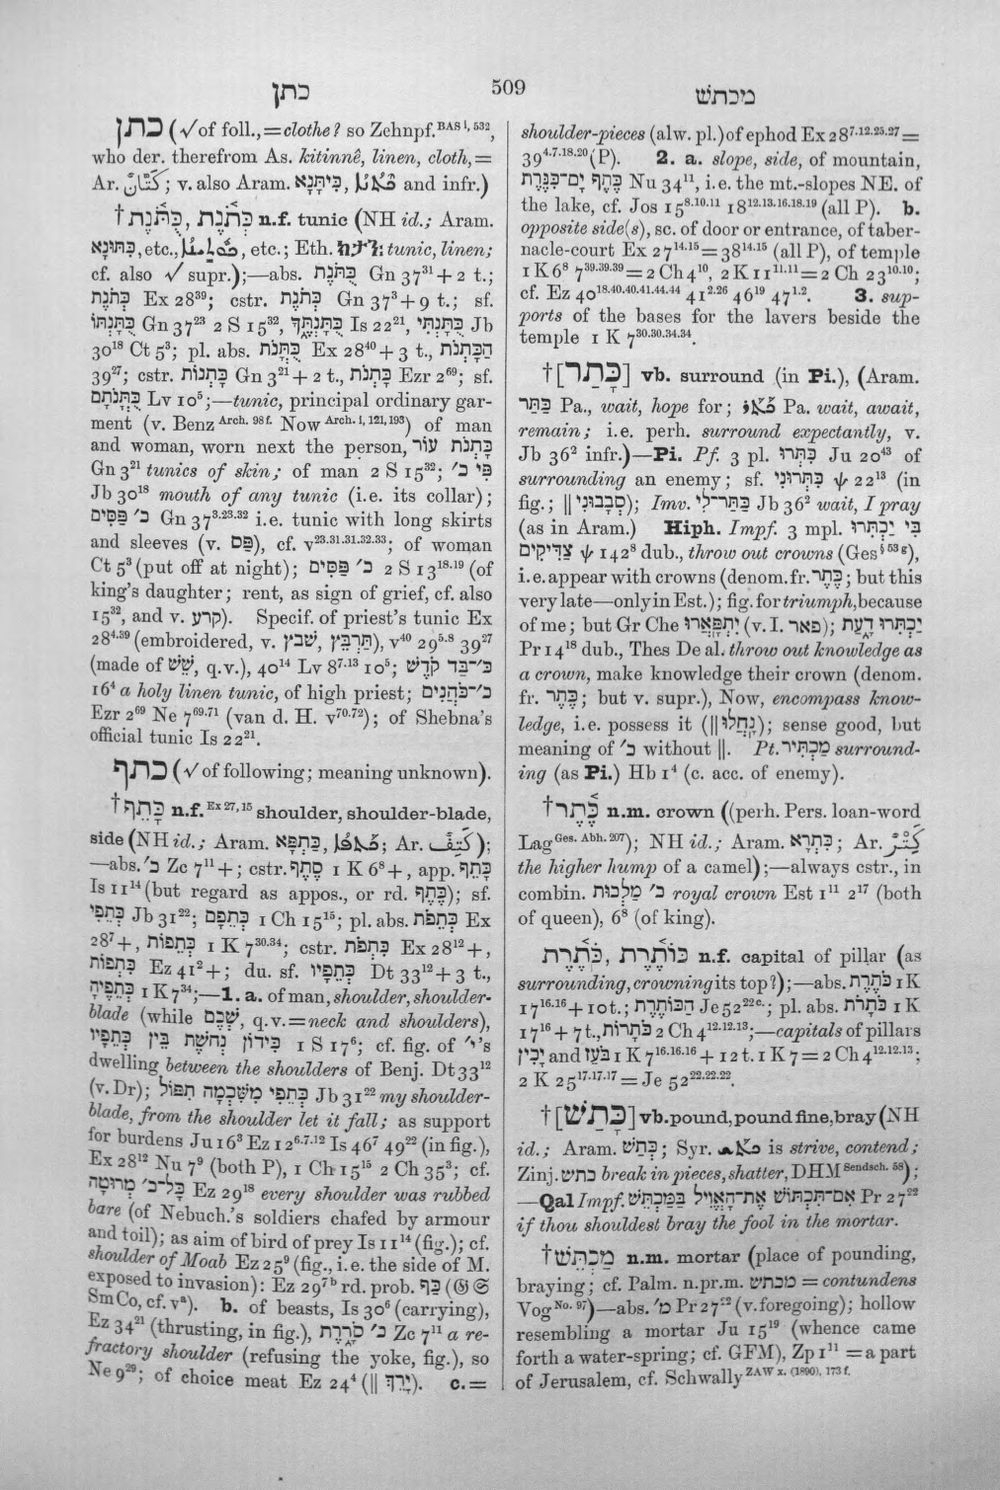 כתן
509
מכתש
כתן (√of foll., = clothe? so Zehnpf.BAS I, 532,
who der. therefrom As. kitinnê, linen, cloth, =
Ar. كَتَّان; v. also Aram. and infr.)
† כֻּתֹּ֫נֶת, כְּתֹ֫נֶת n.f. tunic (NH id.; Aram.
etc., etc.; Eth. tunic, linen;
cf. also √ supr.);—abs. כֻּתֹּנֶת Gn 37³¹ + 2 t.;
כְּתֹנֶת Ex 28³⁹; cstr. כְּתֹנֶת Gn 37³ + 9 t.; sf.
כֻּתָּנְתּוֹ Gn 37²³ 2 S 15³², כֻּתָּנְתֶּךָ Is 22²¹, כֻּתָּנְתִּי Jb
30¹⁸ Ct 5³; pl. abs. כֻּתֳּנֹת Ex 28⁴⁰ + 3 t., הַכָּתְנֹת
39²⁷; cstr. כָּתְנוֹת Gn 3²¹ + 2 t., כָּתְנֹת Ezr 2⁶⁹; sf.
כֻּתֳּנֹתָם Lv 10⁵;—tunic, principal ordinary gar-
ment (v. Benz Arch. 98 f. Now Arch. i, 121, 193) of man
and woman, worn next the person, כָּתְנֹת עוֹר
Gn 3²¹ tunics of skin; of man 2 S 15³²; פִּי כ׳
Jb 30¹⁸ mouth of any tunic (i.e. its collar);
כ׳ פַּסִּים Gn 37³·²³·³² i.e. tunic with long skirts
and sleeves (v. פַּס), cf. v²³·³¹·³¹·³²·³³; of woman
Ct 5³ (put off at night); כ׳ פַּסִּים 2 S 13¹⁸·¹⁹ (of
king's daughter; rent, as sign of grief, cf. also
15³², and v. קרע). Specif. of priest's tunic Ex
28⁴·³⁹ (embroidered, v. תַּרְבֵּץ, שׁבץ), v⁴⁰ 29⁵·⁸ 39²⁷
(made of שֵׁשׁ, q.v.), 40¹⁴ Lv 8⁷·¹³ 10⁵; כ׳־בַּד קֹדֶשׁ
16⁴ a holy linen tunic, of high priest; כ׳־כֹּהֲנִים
Ezr 2⁶⁹ Ne 7⁶⁹·⁷¹ (van d. H. v⁷⁰·⁷²); of Shebna's
official tunic Is 22²¹.
כתף (√of following; meaning unknown).
† כָּתֵף n.f. Ex 27, 15 shoulder, shoulder-blade,
side (NH id.; Aram. כַּתְפָּא, Ar. كَتِف);
—abs. כ׳ Zc 7¹¹ +; cstr. כֶּתֶף 1 K 6⁸ +, app. כָּתֵף
Is 11¹⁴ (but regard as appos., or rd. כֶּתֶף); sf.
כְּתֵפִי Jb 31²²; כְּתֵפָם 1 Ch 15¹⁵; pl. abs. כְּתֵפֹת Ex
28⁷ +, כְּתֵפוֹת 1 K 7³⁰·³⁴; cstr. כִּתְפֹת Ex 28¹² +,
כִּתְפוֹת Ez 41² +; du. sf. כְּתֵפָיו Dt 33¹² + 3 t.,
כְּתֵפֶיהָ 1 K 7³⁴;—1. a. of man, shoulder, shoulder-
blade (while שְׁכֶם, q.v. = neck and shoulders),
כִּידוֹן נְחֹשֶׁת בֵּין כְּתֵפָיו 1 S 17⁶; cf. fig. of י׳'s
dwelling between the shoulders of Benj. Dt 33¹²
(v. Dr); כְּתֵפִי מִשִּׁכְמָה תִפּוֹל Jb 31²² my shoulder-
blade, from the shoulder let it fall; as support
for burdens Ju 16³ Ez 12⁶·⁷·¹² Is 46⁷ 49²² (in fig.),
Ex 28¹² Nu 7⁹ (both P), 1 Ch 15¹⁵ 2 Ch 35³; cf.
כָּל־כ׳ מְרוּטָה Ez 29¹⁸ every shoulder was rubbed
bare (of Nebuch.'s soldiers chafed by armour
and toil); as aim of bird of prey Is 11¹⁴ (fig.); cf.
shoulder of Moab Ez 25⁹ (fig., i. e. the side of M.
exposed to invasion): Ez 29⁷ᵇ rd. prob. כַּף (𝔊 𝔖
Sm Co, cf. vᵃ). b. of beasts, Is 30⁶ (carrying),
Ez 34²¹ (thrusting, in fig.), כ׳ סֹרֶרֶת Zc 7¹¹ a re-
fractory shoulder (refusing the yoke, fig.), so
Ne 9²⁹; of choice meat Ez 24⁴ (|| יָרֵךְ). c. =
shoulder-pieces (alw. pl.) of ephod Ex 28⁷·¹²·²⁵·²⁷ =
39⁴·⁷·¹⁸·²⁰ (P). 2. a. slope, side, of mountain,
כֶּתֶף יָם־כִּנֶּרֶת Nu 34¹¹, i.e. the mt.-slopes NE. of
the lake, cf. Jos 15⁸·¹⁰·¹¹ 18¹²·¹³·¹⁶·¹⁸·¹⁹ (all P). b.
opposite side(s), sc. of door or entrance, of taber-
nacle-court Ex 27¹⁴·¹⁵ = 38¹⁴·¹⁵ (all P), of temple
1 K 6⁸ 7³⁹·³⁹·³⁹ = 2 Ch 4¹⁰, 2 K 11¹¹·¹¹ = 2 Ch 23¹⁰·¹⁰;
cf. Ez 40¹⁸·⁴⁰·⁴⁰·⁴¹·⁴⁴·⁴⁴ 41²·²⁶ 46¹⁹ 47¹·². 3. sup-
ports of the bases for the lavers beside the
temple 1 K 7³⁰·³⁰·³⁴·³⁴.
† [כָּתַר] vb. surround (in Pi.), (Aram.
כַּתַּר Pa., wait, hope for; Pa. wait, await,
remain; i.e. perh. surround expectantly, v.
Jb 36² infr.)—Pi. Pf. 3 pl. כִּתְּרוּ Ju 20⁴³ of
surrounding an enemy; sf. כִּתְּרוּנִי ψ 22¹³ (in
fig.; || סְבָבוּנִי); Imv. כַּתַּר־לִי Jb 36² wait, I pray
(as in Aram.) Hiph. Impf. 3 mpl. בִּי יַכְתִּרוּ
צַדִּיקִים ψ 142⁸ dub., throw out crowns (Ges § 53 g),
i.e. appear with crowns (denom. fr. כֶּתֶר; but this
very late—only in Est.); fig. for triumph, because
of me; but Gr Che יִתְפָּאֲרוּ (v. I. פאר); יַכְתִּרוּ דָעַת
Pr 14¹⁸ dub., Thes De al. throw out knowledge as
a crown, make knowledge their crown (denom.
fr. כֶּתֶר; but v. supr.), Now, encompass know-
ledge, i.e. possess it (|| נָחֲלוּ); sense good, but
meaning of כ׳ without ||. Pt. מַכְתִּיר surround-
ing (as Pi.) Hb 1⁴ (c. acc. of enemy).
† כֶּ֫תֶר n.m. crown ((perh. Pers. loan-word
Lag Ges. Abh. 207); NH id.; Aram. כִּתְרָא; Ar. كَتْر
the higher hump of a camel);—always cstr., in
combin. כ׳ מַלְכוּת royal crown Est 1¹¹ 2¹⁷ (both
of queen), 6⁸ (of king).
כֹּתֶ֫רֶת, כּוֹתֶ֫רֶת n.f. capital of pillar (as
surrounding, crowning its top?);—abs. כֹּתֶרֶת 1 K
17¹⁶·¹⁶ + 10 t.; הַכּוֹתֶרֶת Je 52²² ᶜ·; pl. abs. כֹּתָרֹת 1 K
17¹⁶ + 7 t., כֹּתָרוֹת 2 Ch 4¹²·¹²·¹³;—capitals of pillars
יָכִין and בֹּעַז 1 K 7¹⁶·¹⁶·¹⁶ + 12 t. 1 K 7 = 2 Ch 4¹²·¹²·¹³;
2 K 25¹⁷·¹⁷·¹⁷ = Je 52²²·²²·²².
† [כָּתַשׁ] vb. pound, pound fine, bray (NH
id.; Aram. כְּתַשׁ; Syr. is strive, contend;
Zinj. כתש break in pieces, shatter, DHM Sendsch. 58);
—Qal Impf. אִם־תִּכְתּוֹשׁ אֶת־הָאֱוִיל בַּמַּכְתֵּשׁ Pr 27²²
if thou shouldest bray the fool in the mortar.
† מַכְתֵּשׁ n.m. mortar (place of pounding,
braying; cf. Palm. n.pr.m. מכתש = contundens
Vog No. 97)—abs. מ׳ Pr 27²² (v. foregoing); hollow
resembling a mortar Ju 15¹⁹ (whence came
forth a water-spring; cf. GFM), Zp 1¹¹ = a part
of Jerusalem, cf. Schwally ZAW x. (1890), 173 f.